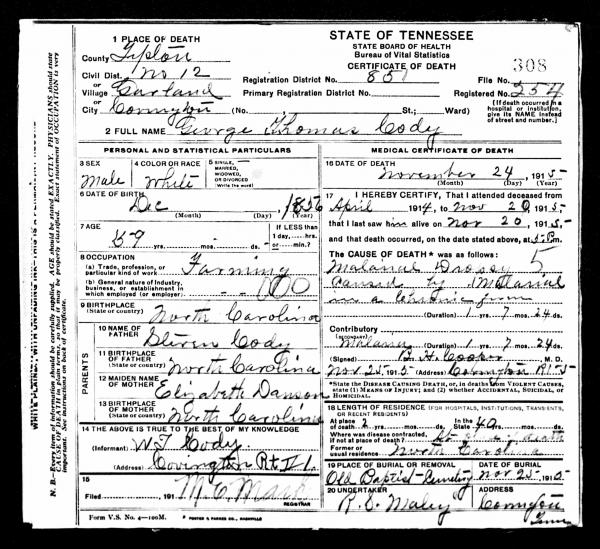 STATE OF TENNESSEE
STATE BOARD OF HEALTH
Bureau of Vital Statistics
CERTIFICATE OF DEATH
1 PLACE OF DEATH
County Tipton
Civil Dist. No 12
or
Village Garland
or
City Covington (No. , St.; Ward)
Registration District No. 851
File No. 308
Primary Registration District No.
Registered No. 254
(If death occurred in a hospital or institution, give its NAME instead of street and number.)
2 FULL NAME George Thomas Cody
PERSONAL AND STATISTICAL PARTICULARS
3 SEX
Male
4 COLOR OR RACE
White
5 SINGLE, MARRIED, WIDOWED, OR DIVORCED (Write the word)
6 DATE OF BIRTH
Dec , 1856
(Month) (Day) (Year)
7 AGE
59 yrs. mos. ds.
If LESS than 1 day, hrs. or min.?
8 OCCUPATION
(a) Trade, profession, or particular kind of work Farming
(b) General nature of Industry, business, or establishment in which employed (or employer)
9 BIRTHPLACE (State or country) North Carolina
PARENTS
10 NAME OF FATHER Steven Cody
11 BIRTHPLACE OF FATHER (State or country) North Carolina
12 MAIDEN NAME OF MOTHER Elizabeth
13 BIRTHPLACE OF MOTHER (State or country) North Carolina
14 THE ABOVE IS TRUE TO THE BEST OF MY KNOWLEDGE
(Informant) W T Cody
(Address) Covington Rt
15
Filed , 191 REGISTRAR
Form V. S. No. 4—100M.
MEDICAL CERTIFICATE OF DEATH
16 DATE OF DEATH
November 24, 1915
(Month) (Day) (Year)
17 I HEREBY CERTIFY, That I attended deceased from
April 1914, to Nov 20, 1915
that I last saw him alive on Nov 20, 1915
and that death occurred, on the date stated above, at 5 P.m.
The CAUSE OF DEATH * was as follows:
Malarial Dropsy
Caused by Malarial
in a Chronic form
(Duration) 1 yrs. 7 mos. 24 ds.
Contributory (SECONDARY) Malaria
(Duration) 1 yrs. 7 mos. 24 ds.
(Signed) B. H. Cooper M. D.
Nov 25, 1915 (Address) Covington R
*State the DISEASE CAUSING DEATH, or, in deaths from VIOLENT CAUSES, state (1) MEANS OF INJURY; and (2) whether ACCIDENTAL, SUICIDAL, or HOMICIDAL.
18 LENGTH OF RESIDENCE (FOR HOSPITALS, INSTITUTIONS, TRANSIENTS, OR RECENT RESIDENTS)
At place of death 2 yrs. mos. ds. In the State 40 yrs. mos. ds.
Where was disease contracted, if not at place of death? death
Former or usual residence North Carolina
19 PLACE OF BURIAL OR REMOVAL
Old Baptist Cemetery
DATE OF BURIAL
Nov 25 1915
20 UNDERTAKER
R. S. Maley
ADDRESS
Covington Tenn